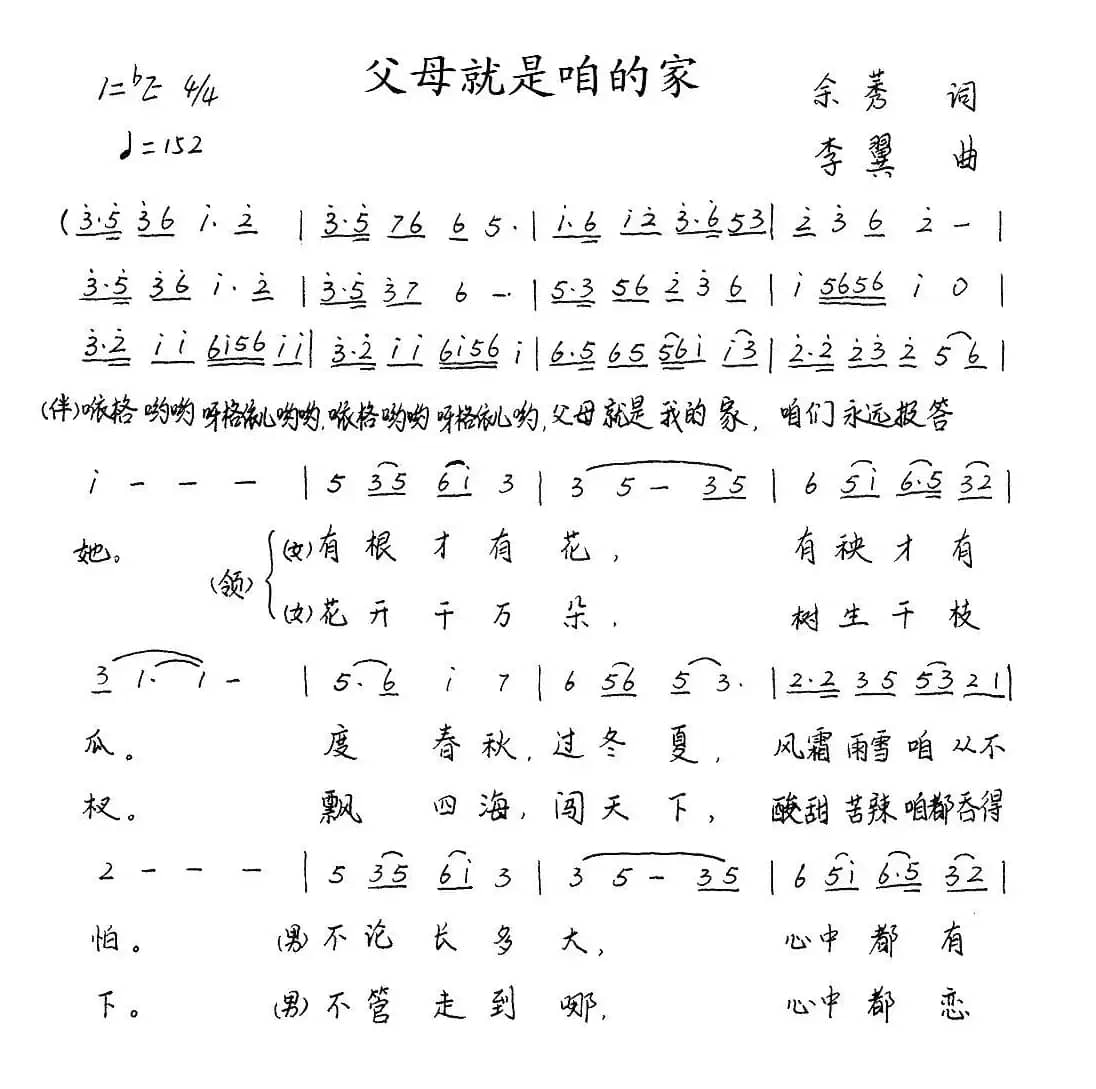 父母就是咱的家
1=♭E 4/4
余莠 词
♩=152
李翼 曲
(3̇·5̇ 3̇6 i·2̇ | 3̇·5̇ 76 6 5· | i·6 i2̇ 3̇·6̇53 | 2̇ 3̇ 6 2̇ - |
3̇·5̇ 3̇6̇ i·2̇ | 3̇·5̇ 3̇7 6 - | 5·3 56 2̇ 3̇ 6 | i 5656 i 0 |
3̇·2̇ i i 6i56 i i | 3̇·2̇ i i 6i56 i | 6·5 65 56i i3̇ | 2̇·2̇ 2̇3̇ 2̇ 5 6 |
(伴)咴格哟哟呀格依儿哟哟,咴格哟哟呀格依儿哟,父母就是我的家, 咱们永远报答
i - - - | 5 35 6i 3 | 3 5 - 35 | 6 5i 6·5 32 |
她。 (领) (女)有根才有花, 有秧才有
(女)花开千万朵, 树生千枝
3 1· 1 - | 5·6 i 7 | 6 56 5 3· | 2·2 35 53 21 |
瓜。 度春秋,过冬夏, 风霜雨雪咱从不
杈。 飘四海,闯天下, 酸甜苦辣咱都吞得
2 - - - | 5 35 6i 3 | 3 5 - 35 | 6 5i 6·5 32 |
怕。 (男)不论长多大, 心中都有
下。 (男)不管走到哪, 心中都恋